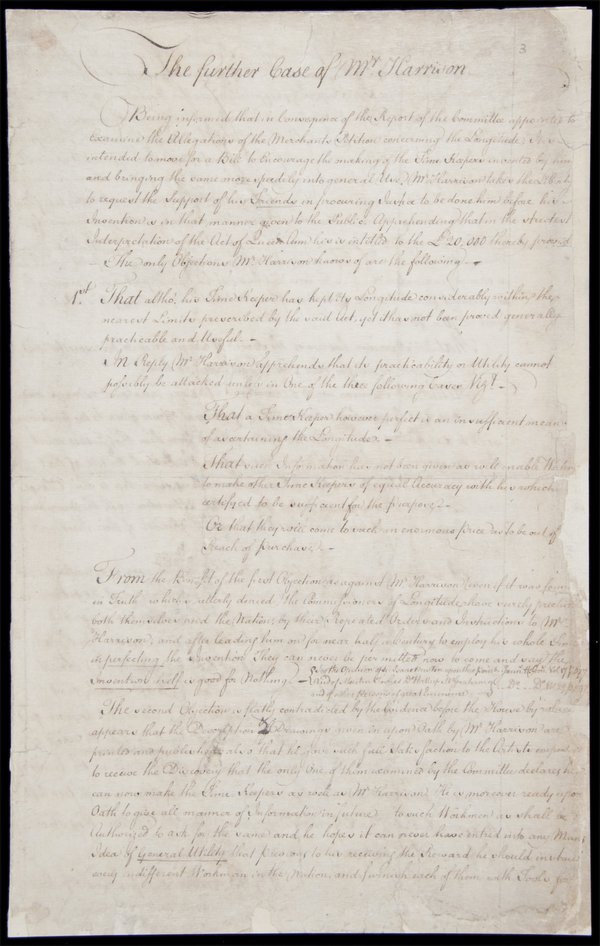 3
The further Case of Mr Harrison
Being informed that in Consequence of the Report of the Committee appointed to
examine the Allegations of the Merchants Petition concerning the Longitude, It is
intended to move for a Bill to Encourage the making of the Time Keepers invented by him
and bringing the same more speedily into general Use, Mr Harrison takes the Liberty
to request the Support of his Friends in procuring Justice to be done him before his
Invention is in that manner given to the Public Apprehending that in the strictest
Interpretation of the Act of Queen Ann he is entitled to the £20,000 thereby
— The only Objections Mr Harrison knows of are the following —
1st. That altho' his Time Keeper has kept its Longitude considerably within the
nearest Limits prescribed by the said Act, yet it has not been proved generally
practicable and Useful. —
In Reply Mr Harrison apprehends that its practicability or Utility cannot
possibly be attacked unless in One of the three following Cases Vizt. —
That a Time Keeper however perfect is an insufficient mean
of ascertaining the Longitude. —
That such Information has not been given as will enable
to make other Time Keepers of equal Accuracy with his which
certified to be sufficient for the purpose, —
Or that they will come to such an enormous price as to be out of
Reach of Purchase. —
From the Benefit of the first Objection as against Mr Harrison (even if it was
in Truth which is utterly denied) the Commissioners of Longitude have surely
both themselves and the Nation, by their repeated Orders and Instructions to Mr
Harrison, and after leading him on for near half a Century to employ his whole
in perfecting the Invention They can never be permitted now to come and say the
Invention itself is good for Nothing. —
and of other Persons of great Eminence
The second Objection is flatly contradicted by the Evidence before the House by which
appears that the Description & Drawings given in upon Oath by Mr Harrison are
printed and published also that he gave such full Satisfaction to the Artists
to receive the Discovery that the only One of them examined by the Committee declares he
can now make the Time Keepers as well as Mr Harrison He is moreover ready upon
Oath to give all manner of Information in future to such Workmen as shall be
Authorized to ask for the same and he hopes it can never have entred into any
Idea of General Utility that previous to his receiving the Reward he should
every indifferent Workman in the Nation, and furnish each of them with Tools